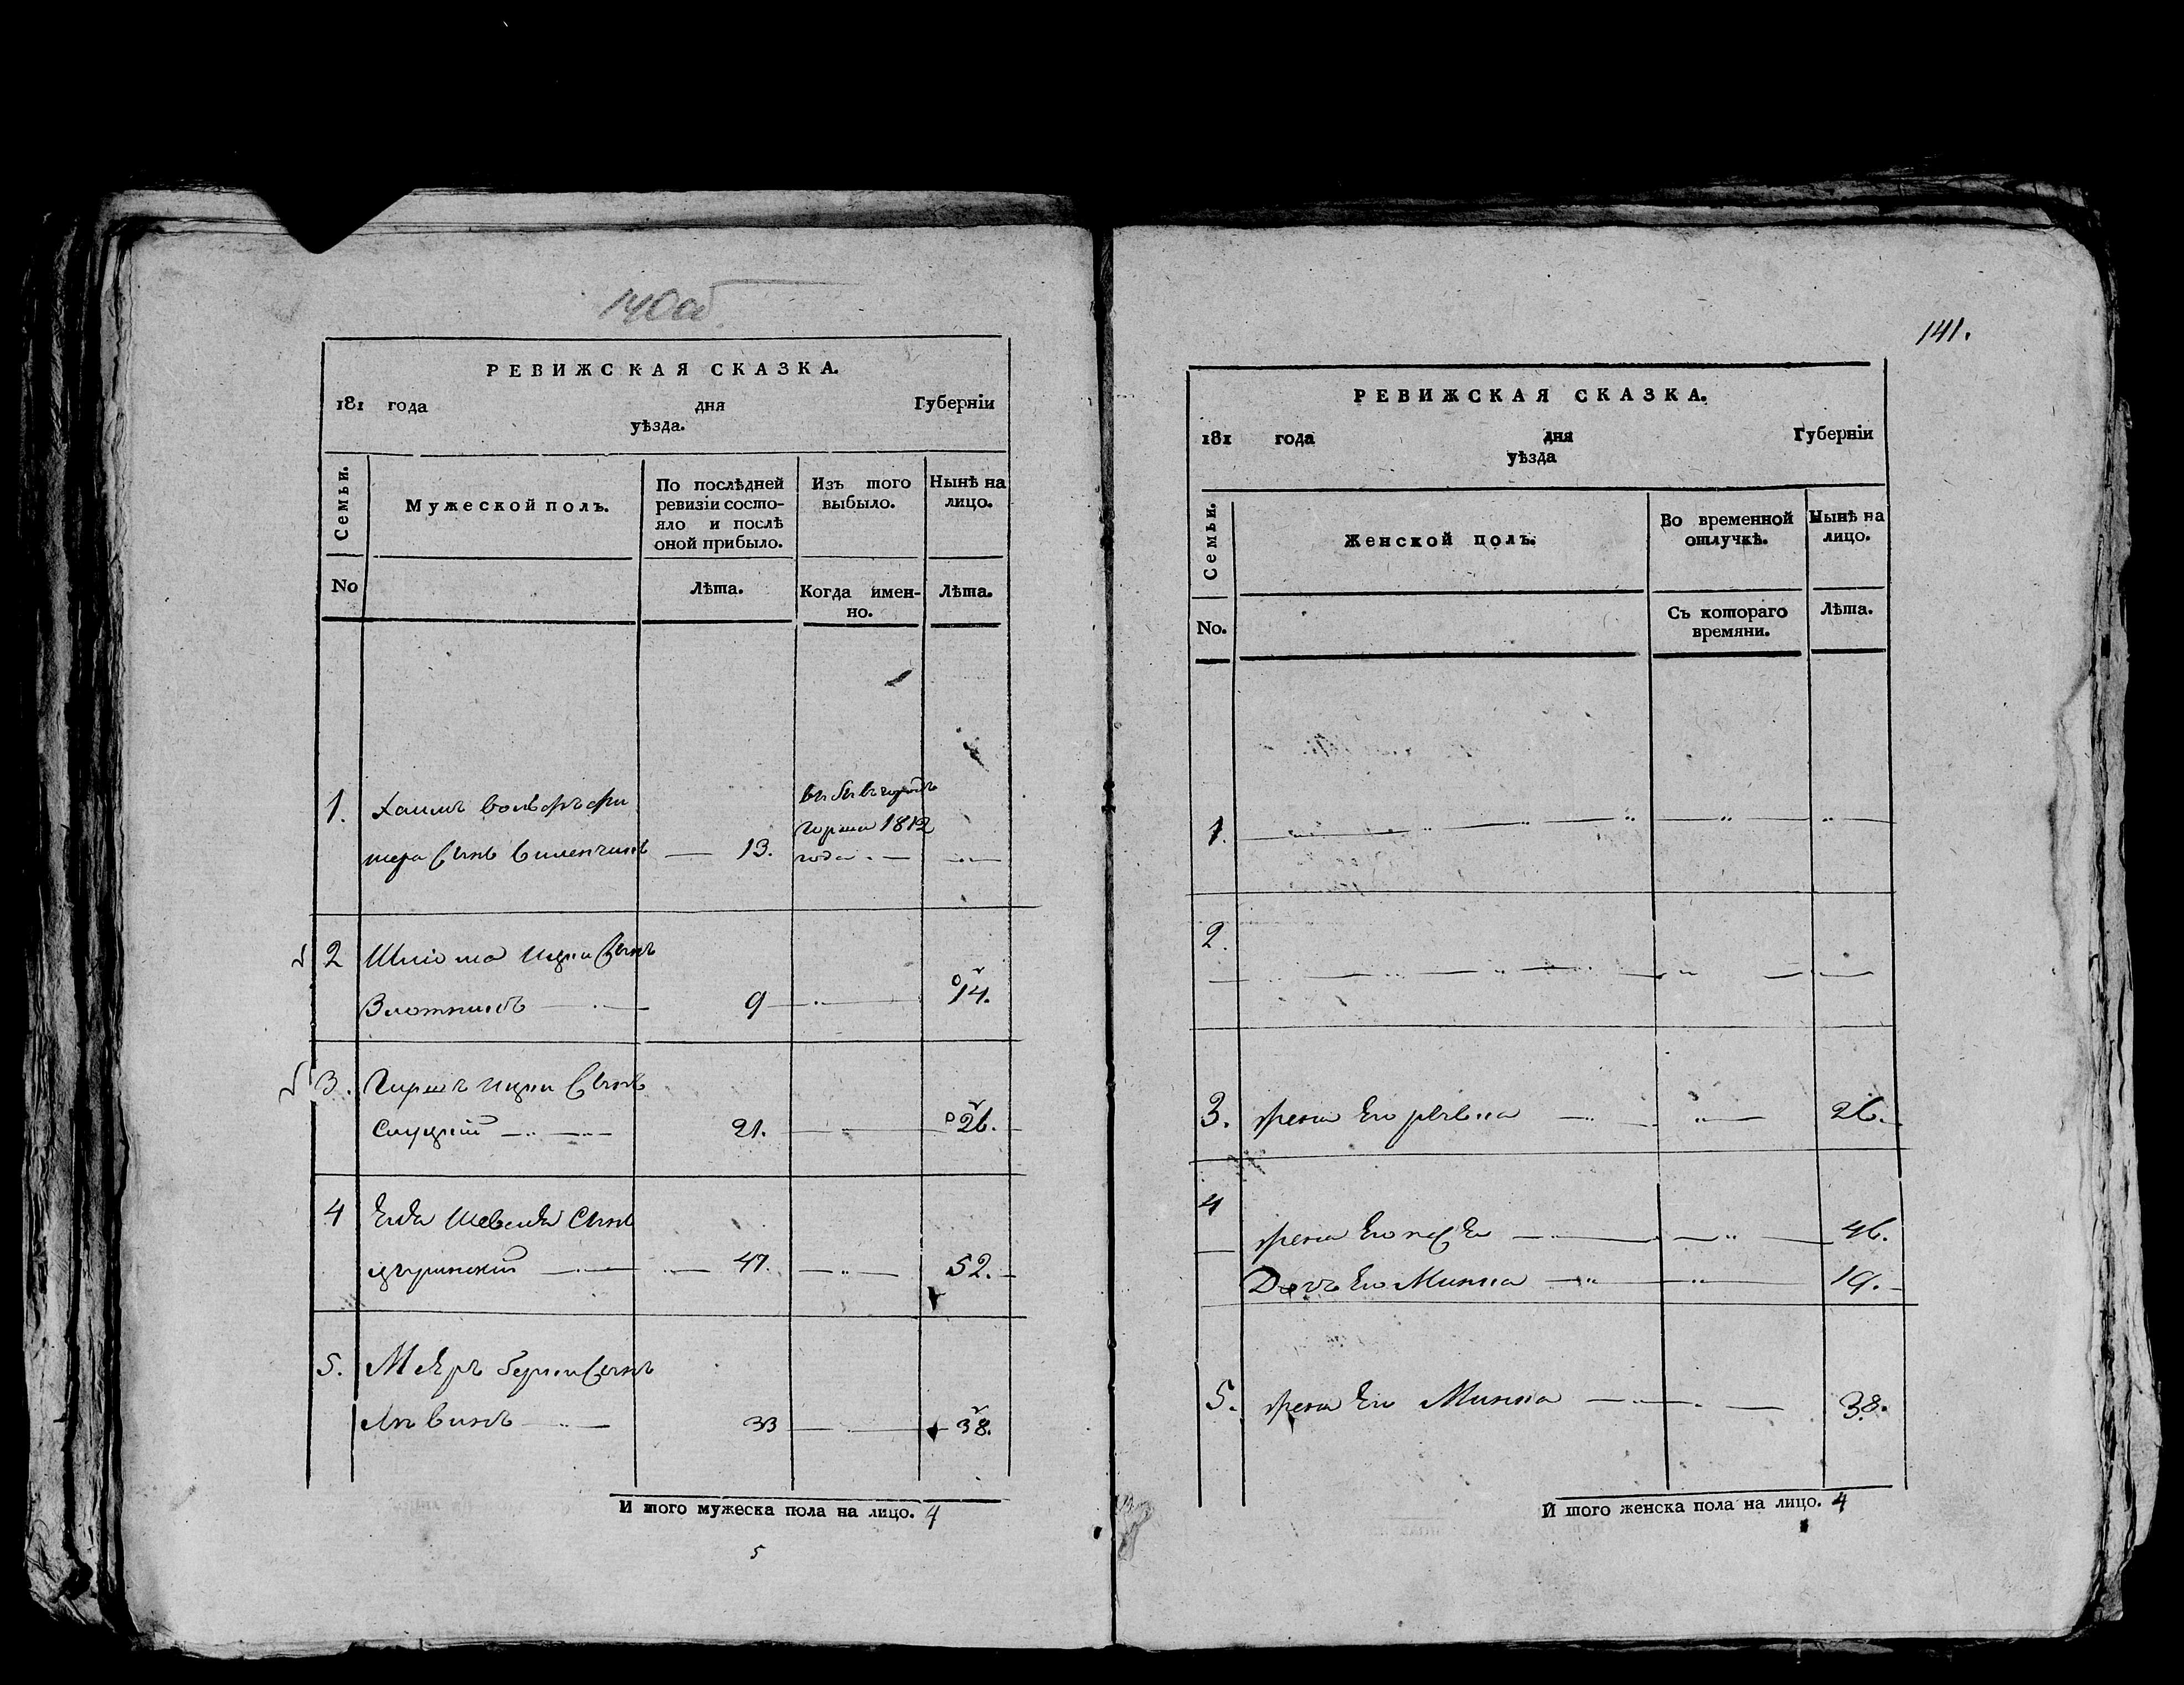 140об
РЕВИЖСКАЯ СКАЗКА.
181 года дня Губерніи
уѣзда.
Семьи.
Мужеской полъ.
По послѣдней ревизіи состо-
яло и послѣ оной прибыло.
Изъ того выбыло.
Нынѣ на лицо.
No
Лѣта.
Когда имен-
но.
Лѣта.
1. Хаимъ Вольфъ
сынъ Виленчикъ 13.
1812
года
2 Шліома Ицки сынъ
Злотникъ 9 14.
3. Гиршъ Ицки сынъ
Слуцкій 21. 26.
4 сынъ
47. 52.
5. Меяръ Берки сынъ
Лѣвинъ 33 38.
И того мужеска пола на лицо. 4
5
141.
РЕВИЖСКАЯ СКАЗКА.
181 года дня Губерніи
уѣзда
Семьи.
Женской полъ.
Во временной отлучкѣ.
Нынѣ на лицо.
No.
Съ котораго времяни.
Лѣта.
1.
2.
3. жена Его Рывка 26.
4
жена Его 46.
Дочь Его Минка 19.
5. жена Его Минка 38.
И того женска пола на лицо. 4